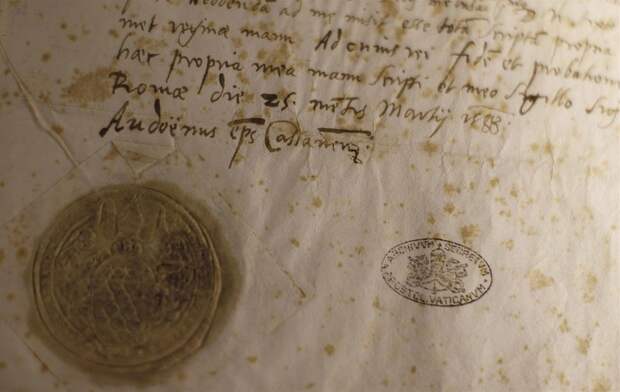 ad me misit esse totā Scriptā propria
met reginæ manu Ad cuius rei fidē et probation
hæc propria mea manu scripsi et meo sigillo
Romæ die 25. mensis Martij 1588.
Audoënus eps Cassanen
ARCHIVUM SECRETUM VATICANUM